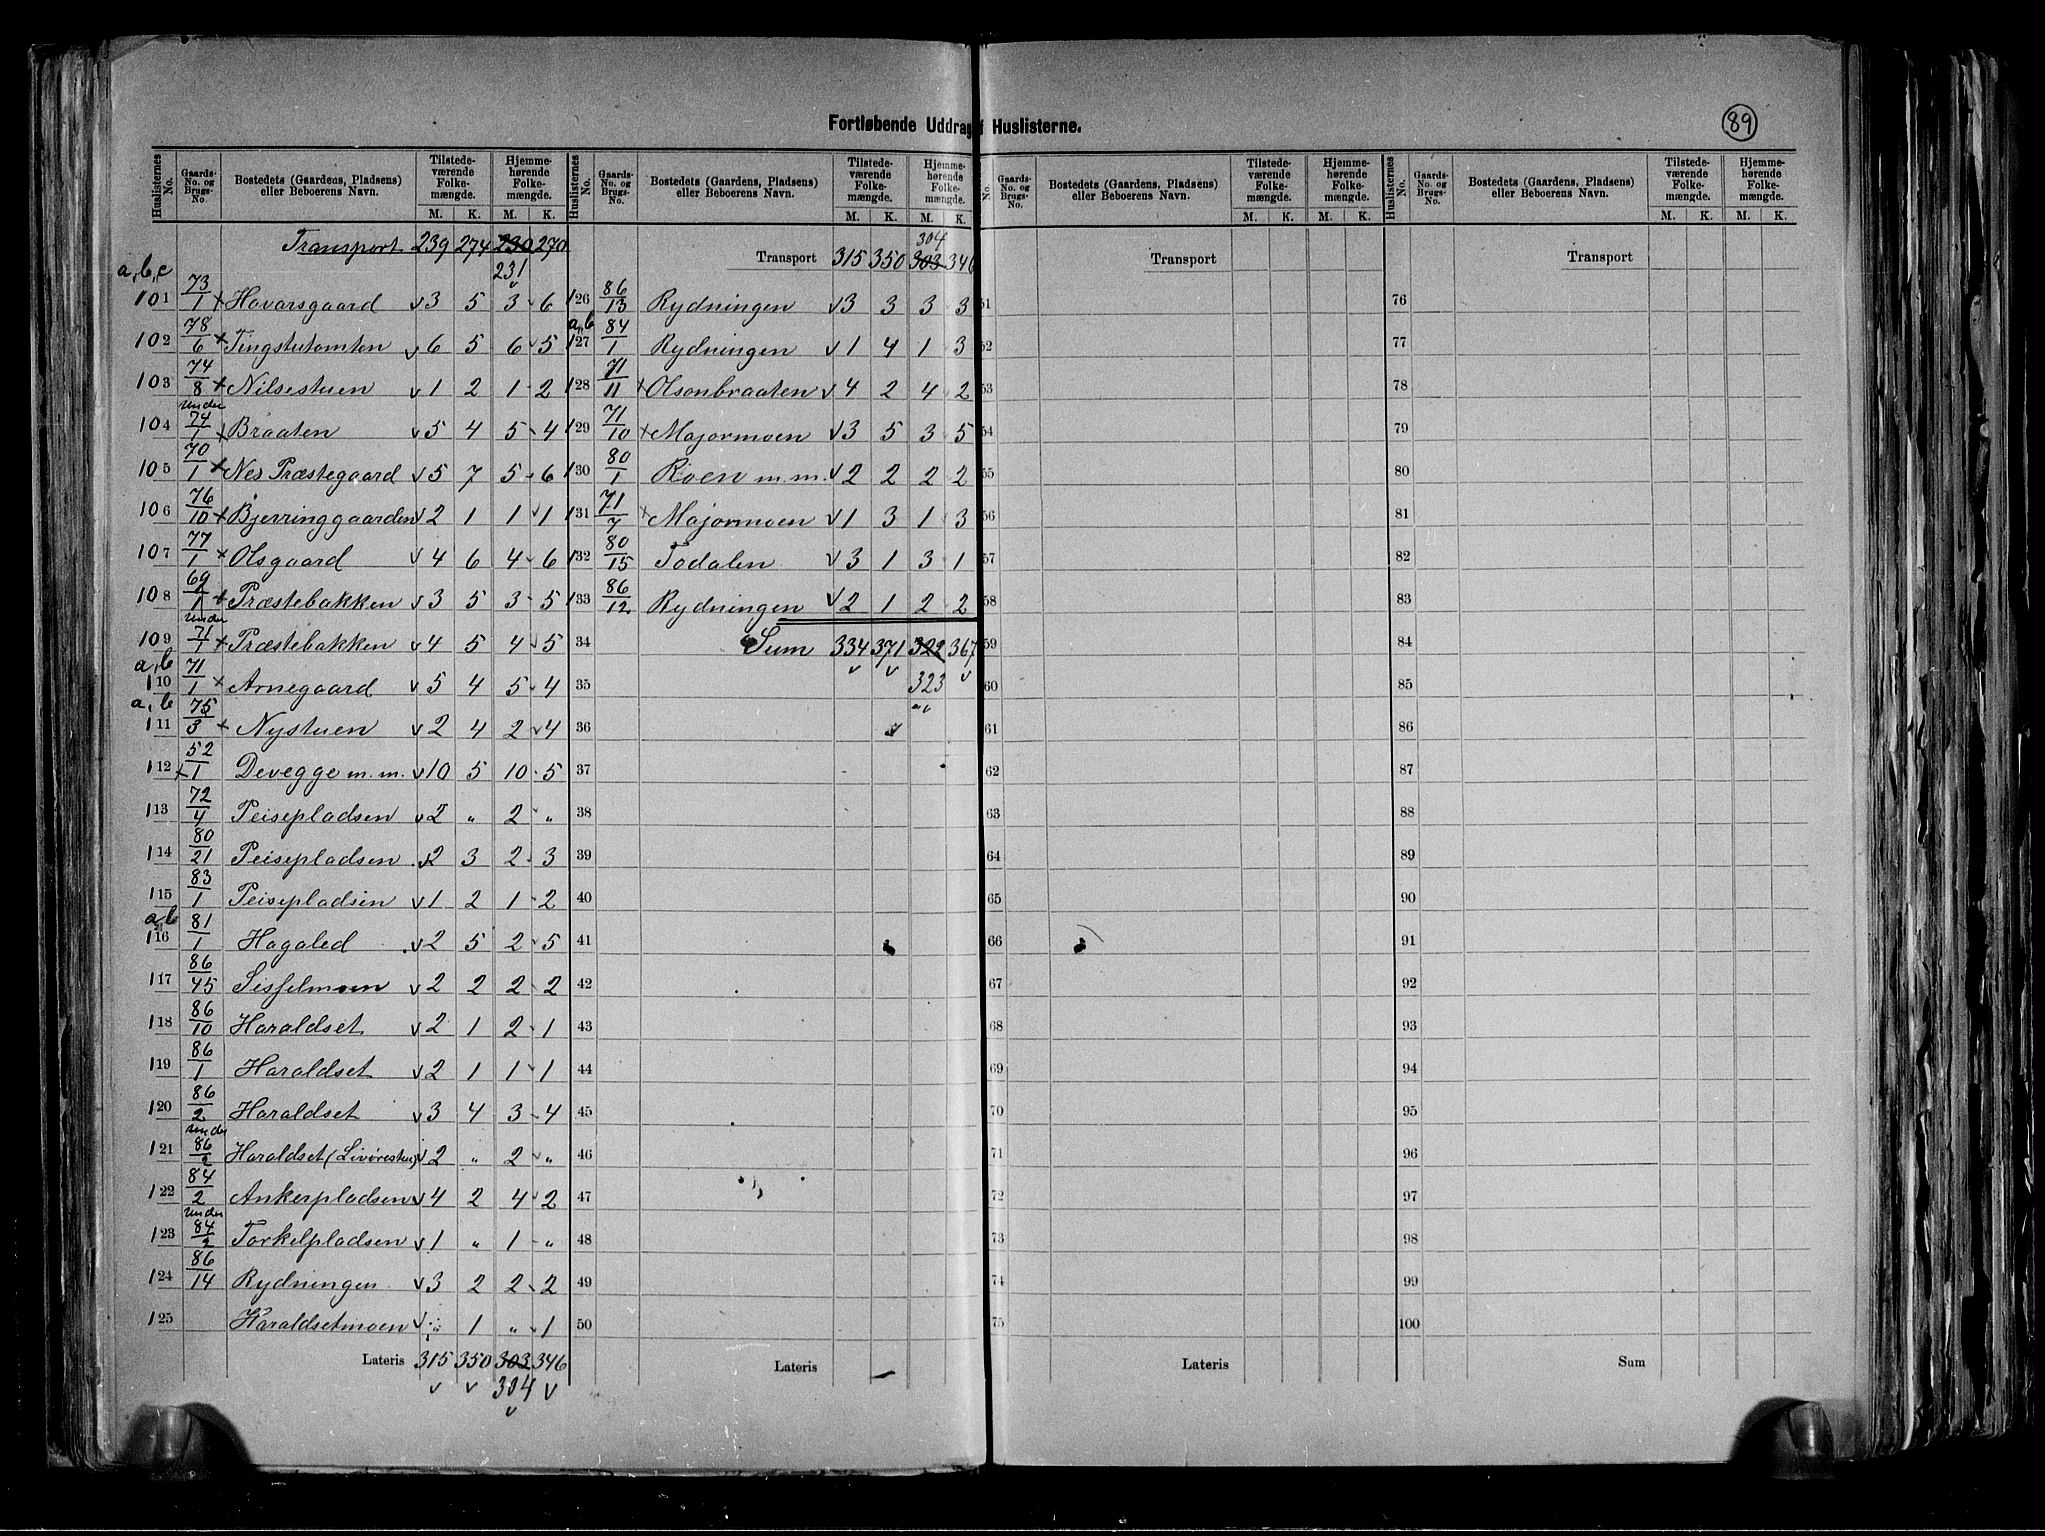 Fortløbende Uddrag Huslisterne.
89
Huslisternes No. | Gaards-No. og Brugs-No. | Bostedets (Gaardens, Pladsens) eller Beboerens Navn. | Tilstedeværende Folkemængde. M. K. | Hjemmehørende Folkemængde. M. K.
Transport 239 274 230 270
231
a,b,c 101 73/1 x Havarsgaard v 3 5 3 6
102 78/6 x Tingstutomten v 6 5 6 5
103 74/8 x Nilsestuen v 1 2 1 2
104 under 74/1 x Braaten v 5 4 5 4
105 70/1 x Nes Præstegaard v 5 7 5 6
106 76/10 x Bjerringgaarden v 2 1 1 1
107 77/1 x Olsgaard v 4 6 4 6
108 69/1 x Præstebakken v 3 5 3 5
109 under 71/1 x Præstebakken v 4 5 4 5
a,b 110 71/1 x Arnegaard v 5 4 5 4
a,b 111 75/3 x Nystuen v 2 4 2 4
112 x 52/1 Devegge m.m. v 10 5 10 5
113 72/4 Peisepladsen v 2 " 2 "
114 80/21 Peisepladsen v 2 3 2 3
115 83/1 Peisepladsen v 1 2 1 2
a,b 116 81/1 Hagaled v 2 5 2 5
117 86/45 Sisselmoen v 2 2 2 2
118 86/10 Haraldset v 2 1 2 1
119 86/1 Haraldset v 2 1 1 1
120 86/2 Haraldset v 3 4 3 4
121 under 86/2 Haraldset (Livørestue) v 2 " 2 "
122 84/2 Ankerpladsen v 4 2 4 2
123 under 84/2 Torkelpladsen v 1 " 1 "
124 86/14 Rydningen v 3 2 2 2
125 Haraldsetmoen v " 1 " 1
Lateris 315 350 303 346
304
Huslisternes No. | Gaards-No. og Brugs-No. | Bostedets (Gaardens, Pladsens) eller Beboerens Navn. | Tilstedeværende Folkemængde. M. K. | Hjemmehørende Folkemængde. M. K.
304
Transport 315 350 303 346
126 86/13 Rydningen v 3 3 3 3
a,b 127 84/1 Rydningen v 1 4 1 3
128 71/11 x Olsonbraaten v 4 2 4 2
129 71/10 x Majormoen v 3 5 3 5
130 80/1 Roen m.m. v 2 2 2 2
131 71/7 x Majormoen v 1 3 1 3
132 80/15 Todalen v 3 1 3 1
133 86/12 Rydningen v 2 1 2 2
34 Sum 334 371 322 367
35 323
36
37
38
39
40
41
42
43
44
45
46
47
48
49
50
Lateris
No. | Gaards-No. og Brugs-No. | Bostedets (Gaardens, Pladsens) eller Beboerens Navn. | Tilstedeværende Folkemængde. M. K. | Hjemmehørende Folkemængde. M. K.
Transport
51
52
53
54
55
56
57
58
59
60
61
62
63
64
65
66
67
68
69
70
71
72
73
74
75
Lateris
Huslisternes No. | Gaards-No. og Brugs-No. | Bostedets (Gaardens, Pladsens) eller Beboerens Navn. | Tilstedeværende Folkemængde. M. K. | Hjemmehørende Folkemængde. M. K.
Transport
76
77
78
79
80
81
82
83
84
85
86
87
88
89
90
91
92
93
94
95
96
97
98
99
100
Sum